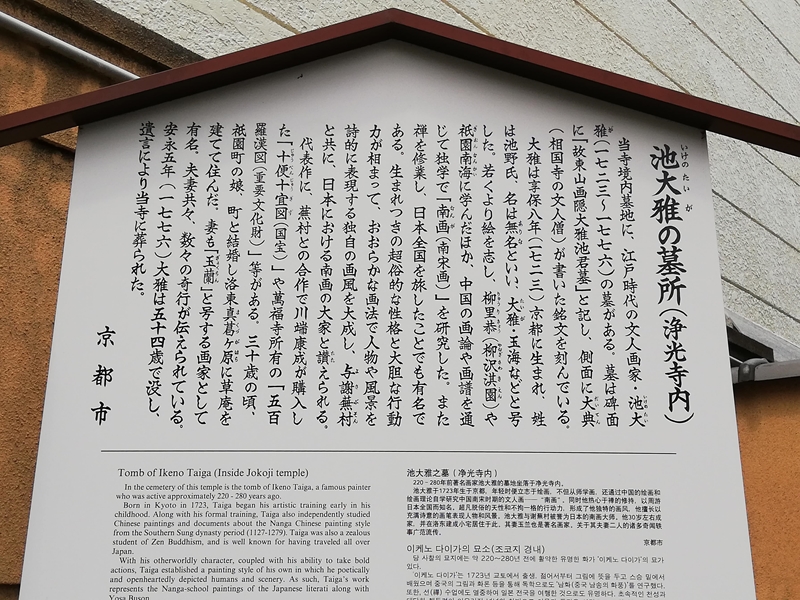 池大雅の墓所（浄光寺内）
当寺境内墓地に、江戸時代の文人画家・池大
雅（一七二三〜一七七六）の墓がある。墓は碑面
に「故東山画隠大雅池君墓」と記し、側面に大典
（相国寺の文人僧）が書いた銘文を刻んでいる。
大雅は享保八年（一七二三）京都に生まれ、姓
は池野氏、名は無名といい、大雅・玉海などと号
した。若くより絵を志し、柳里恭（柳沢淇園）や
祇園南海に学んだほか、中国の画論や画譜を通
じて独学で「南画（南宋画）」を研究した。また
禅を修業し、日本全国を旅したことでも有名で
ある。生まれつきの超俗的な性格と大胆な行動
力が相まって、おおらかな画法で人物や風景を
詩的に表現する独自の画風を大成し、与謝蕪村
と共に、日本における南画の大家と讃えられる。
代表作に、蕪村との合作で川端康成が購入し
た「十便十宜図（国宝）」や萬福寺所有の「五百
羅漢図（重要文化財）」等がある。三十歳の頃、
祇園町の娘、町と結婚し洛東真葛ヶ原に草庵を
建てて住んだ。妻も「玉蘭」と号する画家として
有名。夫妻共々、数々の奇行が伝えられている。
安永五年（一七七六）大雅は五十四歳で没し、
遺言により当寺に葬られた。
京都市
Tomb of Ikeno Taiga (Inside Jokoji temple)
In the cemetery of this temple is the tomb of Ikeno Taiga, a famous painter
who was active approximately 220 - 280 years ago.
Born in Kyoto in 1723, Taiga began his artistic training early in his
childhood. Along with his formal training, Taiga also independently studied
Chinese paintings and documents about the Nanga Chinese painting style
from the Southern Sung dynasty period (1127-1279). Taiga was also a zealous
student of Zen Buddhism, and is well known for having traveled all over
Japan.
With his otherworldly character, coupled with his ability to take bold
actions, Taiga established a painting style of his own in which he poetically
and openheartedly depicted humans and scenery. As such, Taiga's work
represents the Nanga-school paintings of the Japanese literati along with
Yosa Buson.
池大雅之墓（净光寺内）
220－280年前著名画家池大雅的墓地坐落于净光寺内。
池大雅于1723年生于京都，年轻时便立志于绘画，不但从师学画，还通过中国的绘画和
绘画理论自学研究中国南宋时期的文人画——“南画”，同时他热心于禅的修持，以周游
日本全国而知名。超凡脱俗的天性和不拘一格的行动力，形成了他独特的画风，他擅长以
充满诗意的画笔表现人物和风景。池大雅与谢野村被誉为日本的南画大师，他30岁左右成
家，并在洛东建成小宅居住于此，其妻玉兰也是著名画家，关于其夫妻二人的诸多奇闻轶
事广范流传。
京都市
이케노 다이가의 묘소(조코지 경내)
당 사찰의 묘지에는 약 220~280년 전에 활약한 유명한 화가 '이케노 다이가'의 묘가
있다.
'이케노 다이가'는 1723년 교토에서 출생, 젊어서부터 그림에 뜻을 두고 스승 밑에서
배웠으며 중국의 그림과 화론 등을 통해 독학으로 '남화(중국 남송의 화풍)'를 연구했다.
또한, 선(禪) 수업에도 열중하여 일본 전국을 여행한 것으로도 유명하다.